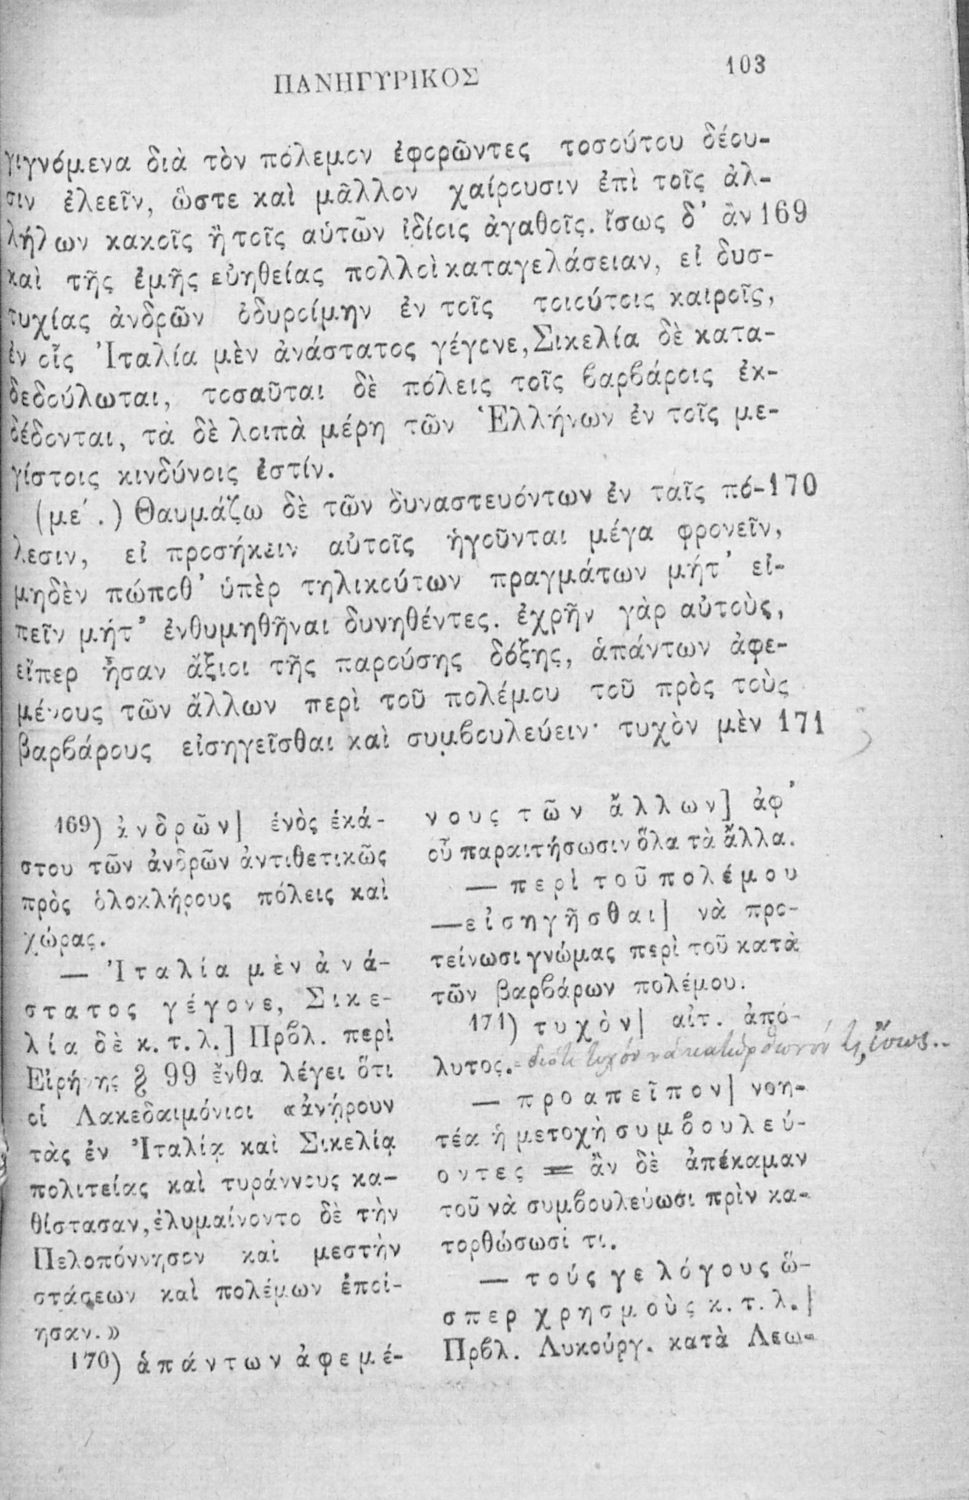 ΠΑΝΗΓΥΡΙΚΟΣ
103
γιγνόμενα διὰ τὸν πόλεμον ἐφορῶντες τοσούτου δέου-
σιν ἐλεεῖν, ὥστε καὶ μᾶλλον χαίρουσιν ἐπὶ τοῖς ἀλ-
λήλων κακοῖς ἢ τοῖς αὑτῶν ἰδίοις ἀγαθοῖς. ἴσως δ' ἂν 169
καὶ τῆς ἐμῆς εὐηθείας πολλοὶ καταγελάσειαν, εἰ δυσ-
τυχίας ἀνδρῶν ὀδυροίμην ἐν τοῖς τοιούτοις καιροῖς,
ἐν οἷς Ἰταλία μὲν ἀνάστατος γέγονε, Σικελία δὲ κατα-
δεδούλωται, τοσαῦται δὲ πόλεις τοῖς βαρβάροις ἐκ-
δέδονται, τὰ δὲ λοιπὰ μέρη τῶν Ἑλλήνων ἐν τοῖς με-
γίστοις κινδύνοις ἐστίν.
(με΄.) Θαυμάζω δὲ τῶν δυναστευόντων ἐν ταῖς πό- 170
λεσιν, εἰ προσήκειν αὐτοῖς ἡγοῦνται μέγα φρονεῖν,
μηδὲν πώποθ' ὑπὲρ τηλικούτων πραγμάτων μήτ' εἰ-
πεῖν μήτ' ἐνθυμηθῆναι δυνηθέντες. ἐχρῆν γὰρ αὐτοὺς,
εἴπερ ἦσαν ἄξιοι τῆς παρούσης δόξης, ἁπάντων ἀφε-
μένους τῶν ἄλλων περὶ τοῦ πολέμου τοῦ πρὸς τοὺς
βαρβάρους εἰσηγεῖσθαι καὶ συμβουλεύειν· τυχὸν μὲν 171
169) ἀνδρῶν] ἑνὸς ἑκά-
στου τῶν ἀνδρῶν ἀντιθετικῶς
πρὸς ὁλοκλήρους πόλεις καὶ
χώρας.
— Ἰταλία μὲν ἀνά-
στατος γέγονε, Σικε-
λία δὲ κ. τ. λ.] Πρβλ. περὶ
Εἰρήνης § 99 ἔνθα λέγει ὅτι
οἱ Λακεδαιμόνιοι «ἀνῄρουν
τὰς ἐν Ἰταλίᾳ καὶ Σικελίᾳ
πολιτείας καὶ τυράννους κα-
θίστασαν, ἐλυμαίνοντο δὲ τὴν
Πελοπόννησον καὶ μεστὴν
στάσεων καὶ πολέμων ἐποί-
ησαν.»
170) ἁπάντων ἀφεμέ-
νους τῶν ἄλλων] ἀφ'
οὗ παραιτήσωσιν ὅλα τὰ ἄλλα.
— περὶ τοῦ πολέμου
—εἰσηγῆσθαι] νὰ προ-
τείνωσι γνώμας περὶ τοῦ κατὰ
τῶν βαρβάρων πολέμου.
171) τυχὸν] αἰτ. ἀπό-
λυτος. - διότι τυχόν νὰ κατώρθωνόν τι, ἴσως..
— προαπεῖπον] νοη-
τέα ἡ μετοχὴ συμβουλεύ-
οντες = ἂν δὲ ἀπέκαμαν
τοῦ νὰ συμβουλεύωσι πρὶν κα-
τορθώσωσί τι.
— τούς γε λόγους ὥ-
σπερ χρησμοὺς κ. τ. λ.]
Πρβλ. Λυκούργ. κατὰ Λεω-